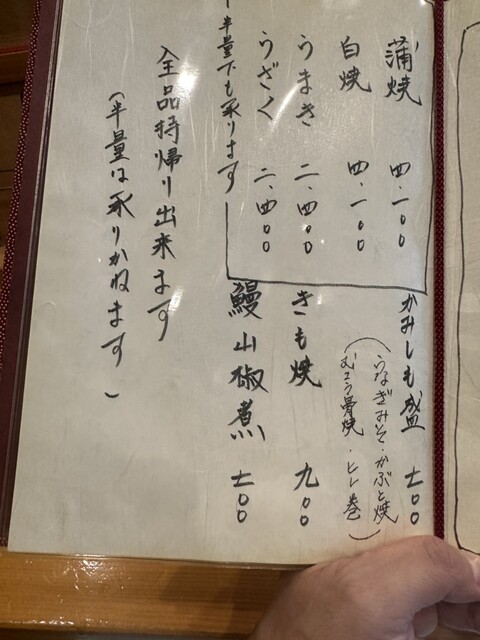 蒲焼 四、一〇〇
白焼 四、一〇〇
うまき 二、四〇〇
うざく 二、四〇〇
半量でも承ります
かみしも盛 七〇〇
(うなぎみそ・かぶと焼
むこう骨焼・ヒレ巻)
きも焼 九〇〇
鰻山椒煮 七〇〇
全品持帰り出来ます
(半量は承りかねます)